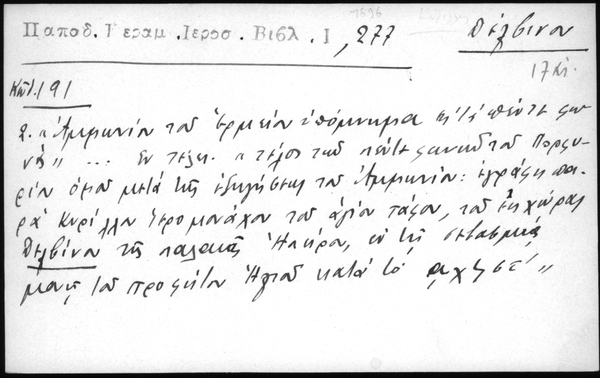 1896
Παποδ. Γεραμ. Ιεροσ. Βιβλ. Ι, 277
Δέλβινον
17 αι.
Κωδ. 191
2. "Ἀμμωνίου τοῦ Ἑρμείου ὑπόμνημα εἰς τὰς πέντε φω-
νάς" ... Ἐν τέλει "τέλος τῶν πέντε φωνῶν τοῦ Πορφυ-
ρίου ὁμοῦ μετὰ τῆς ἐξηγήσεως τοῦ Ἀμμωνίου: ἐγράφη πα-
ρὰ Κυρίλλου ἱερομονάχου τοῦ ἁγίου τάφου, τοῦ ἐκ χώρας
Δελβίνου τῆς παλαιᾶς Ἠπείρου, ἐν τῇ σεβασμίᾳ
μονῇ τοῦ προφήτου Ἠλιοῦ κατὰ τὸ αχξε'"